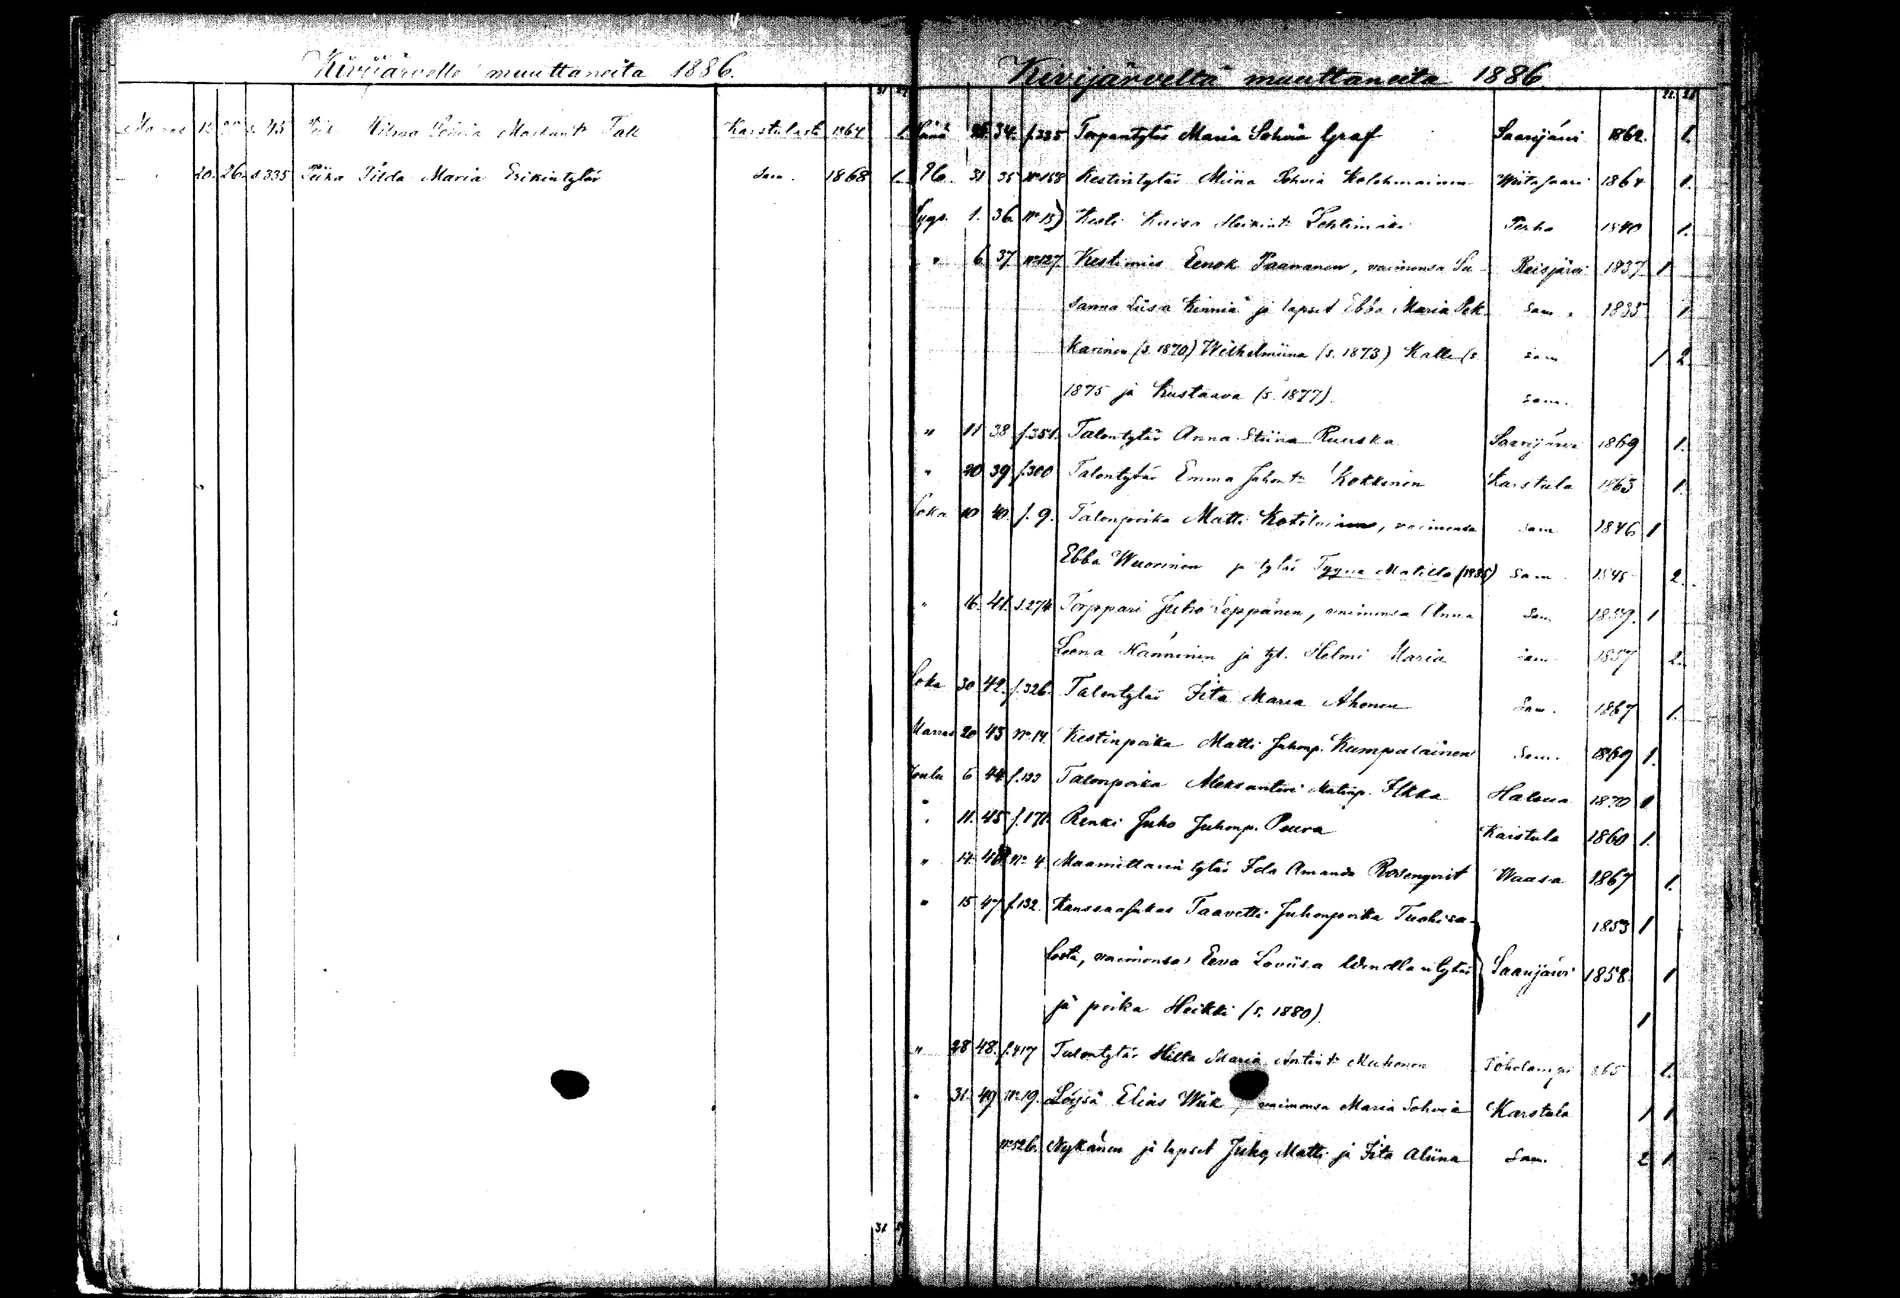 Kivijärvelle muuttaneita 1886.
31
Marras s. 43 Hilma Karstulasta 1864 1
20. 26. s. 335 Piika Tilda Maria Erikintytär Sam. 1868 1.
31
Kivijärveltä muuttaneita 1886.
Heinä 34. f. 335 Torpantytär Maria Sohvia Graf Saarijärvi 1862. 1.
Elo. 31 35 No 158 Kestintytär Miina Sohvia Kolehmainen Wiitasaari 1864 1.
Syys. 1. 36. No 15 Kesti Kaisa Heikint. Lehtimäki Perho 1840 1.
" 6 37. No 127 Kestimies Eenok Paananen, vaimonsa Su- Reisjärvi 1837 1
sanna Liisa Kinniä ja lapset Ebba Maria Pek- Sam. 1835 1
karinen (s. 1870) Wilhelmiina (s. 1873) Kalle (s. sam 1 2.
1875 ja Kustaava (s. 1877). sam.
" 11 38 f. 351. Talontytär Anna Stiina Ruuska Saarijärvi 1869 1.
" 20 39 f. 300 Talontytär Emma Juhont. Kokkinen Karstula 1863 1.
Loka 10 40. f. 9. Talonpoika Matti Kotilainen, vaimonsa sam 1846 1
Ebba Wuorinen ja tytär Tyyne Matilda (1885) Sam. 1845 2.
" 16. 41. s. 274 Torppari Juho Leppänen, vaimonsa Anna Sam. 1859. 1
Leena Hänninen ja tyt. Helmi Maria sam 1857 2.
Loka 30 42. f. 326. Talontytär Iita Maria Ahonen Sam. 1867 1.
Marras 20 43 No 14. Kestinpoika Matti Juhonp. Kumpulainen Sam. 1869 1.
Joulu 6 44 f. 133 Talonpoika Aleksanteri Matinp. Ilkka Halsua 1870 1
" 11. 45 f. 171. Renki Juho Juhonp. Peura Karstula 1860 1.
" 14. 46 No 4 Maamittarin tytär Ida Amanda Rosenqvist Waasa 1867 1.
" 15 47 f. 132. Kanssaasukas Taavetti Juhonpoika Tuohisa- 1853 1
losta, vaimonsa Eeva Loviisa Wendla n tytär Saarijärvi 1858. 1
ja poika Heikki (s. 1880). 1
" 28 48. f. 417 Talontytär Hilta Maria Antint. Muhonen Toholampi 865 1.
" 31. 49 No 19. Löysä Elias Wiik, vaimonsa Maria Sohvia Karstula 1 1
No 526. Nykänen ja lapset Juho, Matti ja Iita Aliina Sam. 2 1